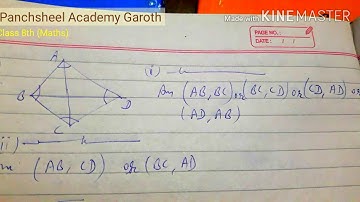 Panchsheel Academy Garoth
Made with KINEMASTER
Class 8th (Maths)
PAGE NO.:
DATE: / /
A
B
D
C
(i)
Ans (AB, BC) or (BC, CD) or (CD, AD) or
(AD, AB)
ii)
(AB, CD) or (BC, AD